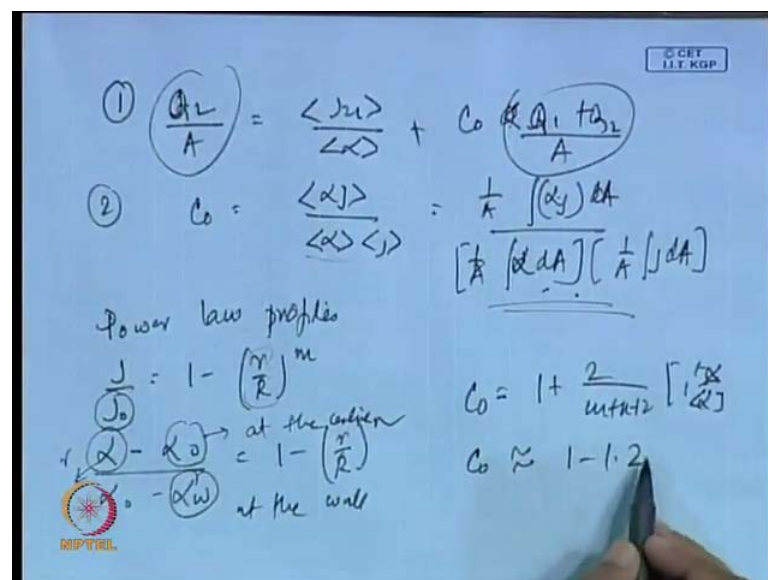 © CET
I.I.T. KGP
① Q2/A = <J21>/<α> + C0 Q1 + Q2/A
② C0 = <αJ>/<α><J> = 1/A ∫(αJ) dA/[1/A ∫α dA][1/A ∫J dA]
Power law profiles
J/J0 = 1 - (r/R)^m
α - α0/α0 - αw = 1 - (r/R)
at the
at the wall
C0 = 1 + 2/m+n+2 [1
C0 ≈ 1 - 1.2
NPTEL